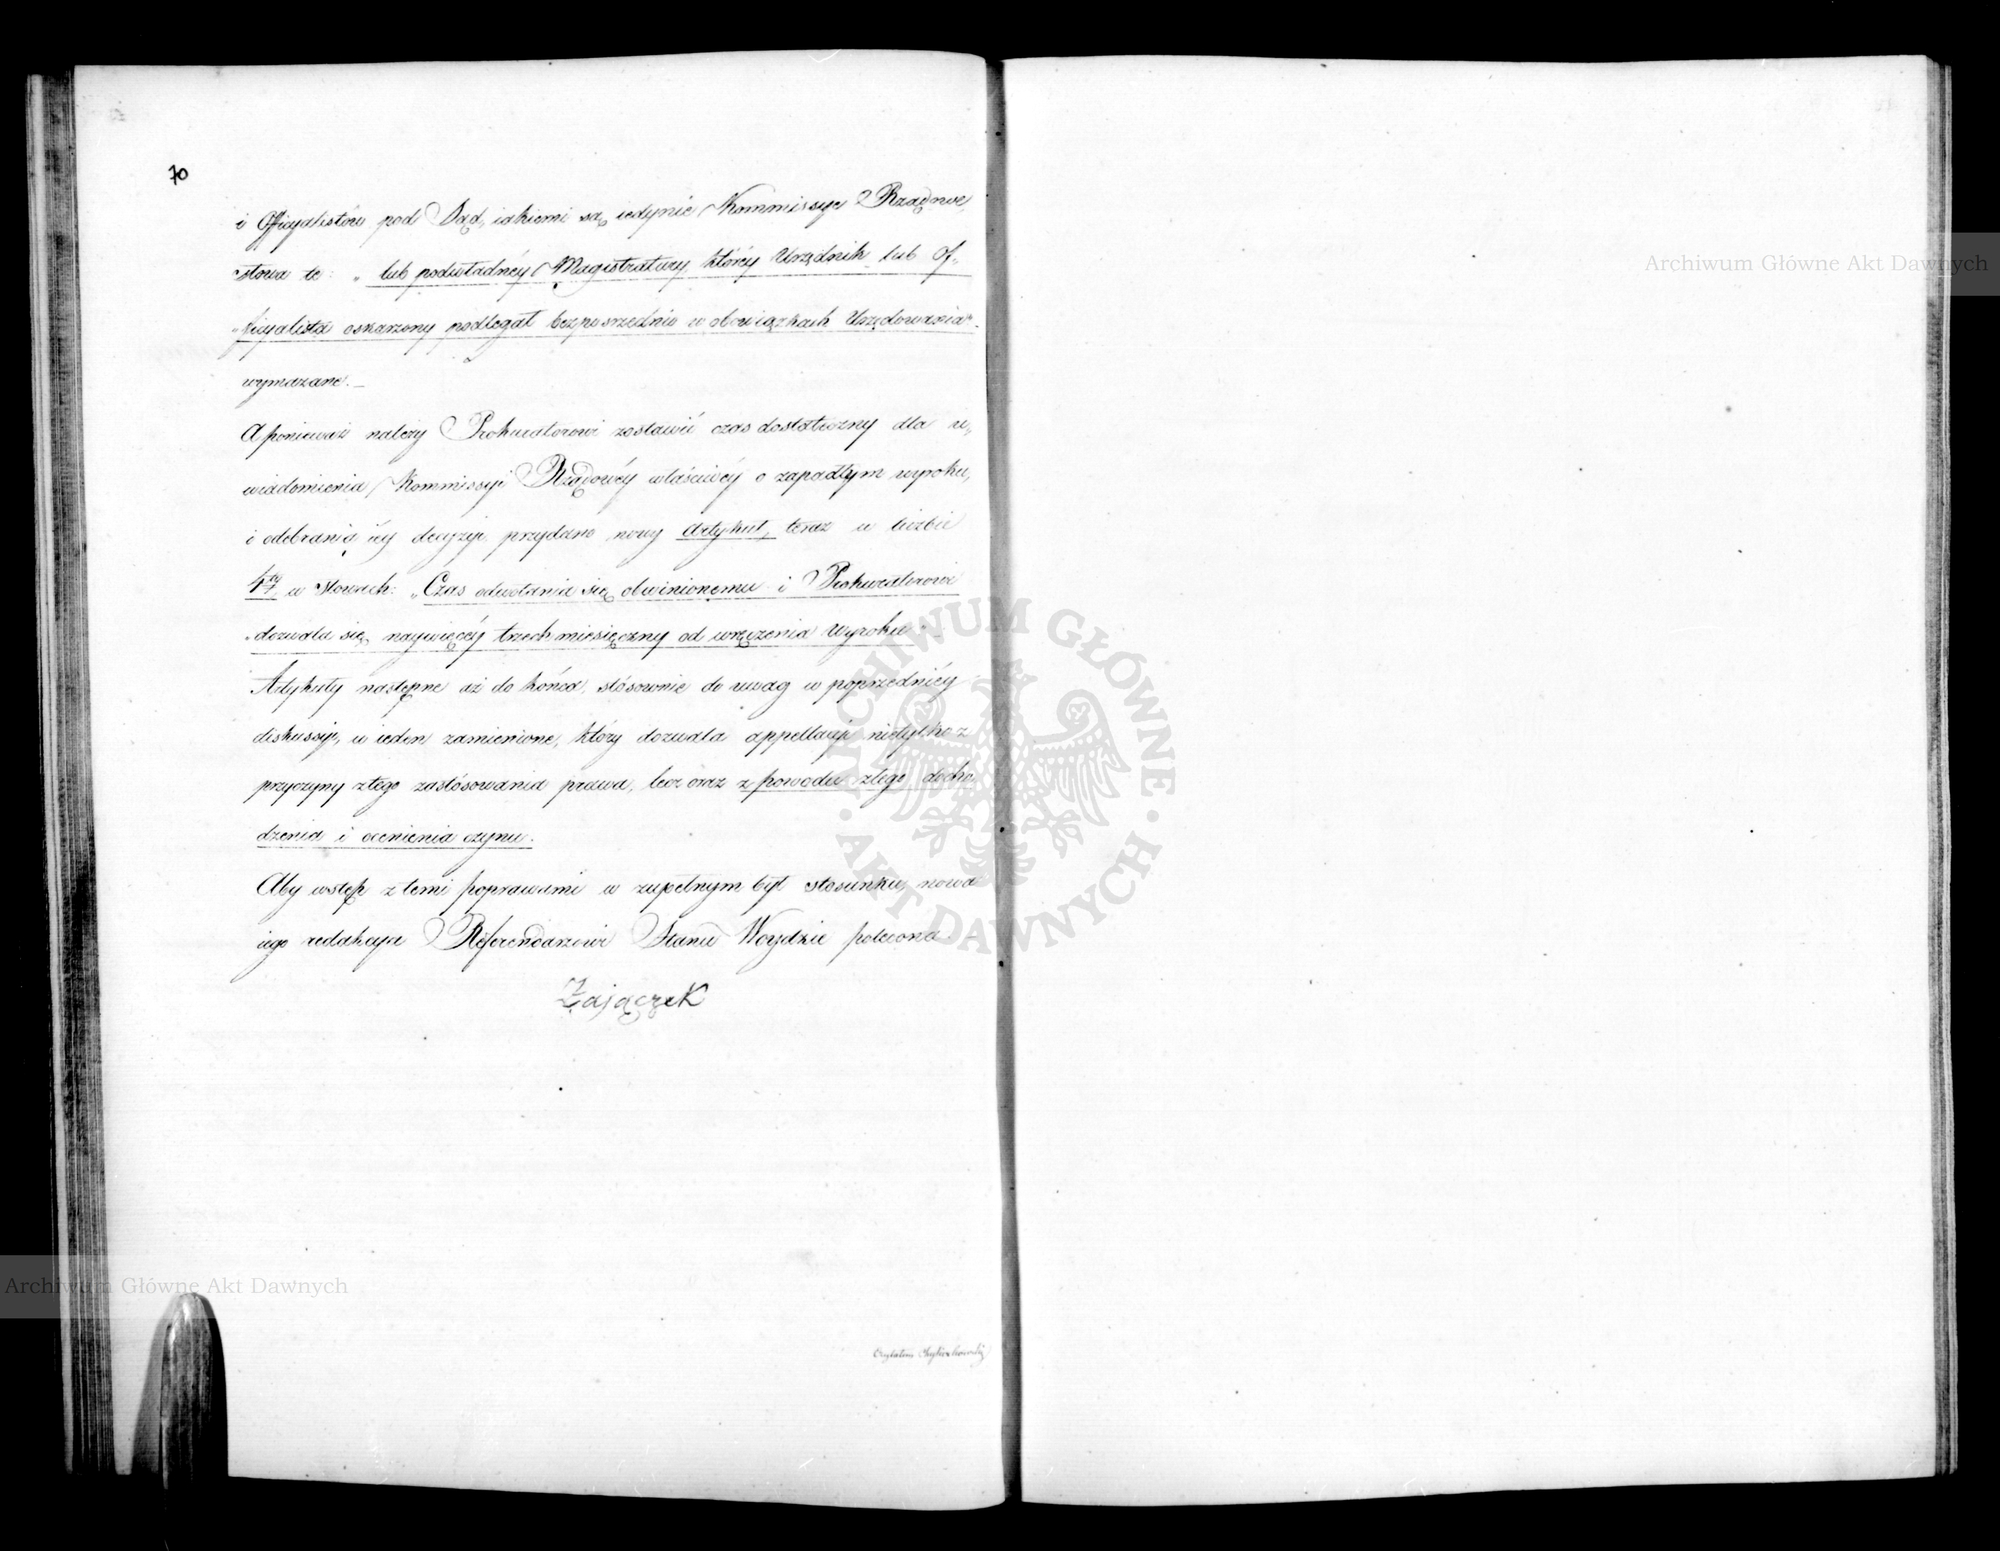 70
i Officyalistów pod Sąd, iakiemi są iedynie Kommissye Rządowe,
słowa te: „lub podwładnéy Magistratury, któréy Urzędnik lub Of-
„ficyalista oskarzony podlegał bezpośrednio w obowiązkach Urzędowania"
wymazane.–
A ponieważ należy Prokuratorowi zostawić czas dostateczny dla u-
wiadomienia Kommissyi Rządowéy właściwéy o zapadłym wyroku,
i odebrania iéy decyzyi, przydano nowy Artykuł, teraz w liczbie
4ty w słowach: „Czas odwołania się obwinionemu i Prokuratorowi
„dozwala się naywięcéy trzechmiesięczny od wręczenia Wyroku"–
Artykuły następne aż do końca, stósownie do uwag w poprzedniéy
diskussyi, w ieden zamienione, który dozwala appellacyi nietylko z
przyczyny złego zastósowania prawa, lecz oraz z powodu złego docho
dzenia i ocenienia czynu.
Aby wstęp z temi poprawami w zupełnym był stosunku, nowa
iego redakcya Referendarzowi Stanu Woydzie polecona.–
Zajączek
Archiwum Główne Akt Dawnych
Archiwum Główne Akt Dawnych
ARCHIWUM GŁÓWNE AKT DAWNYCH